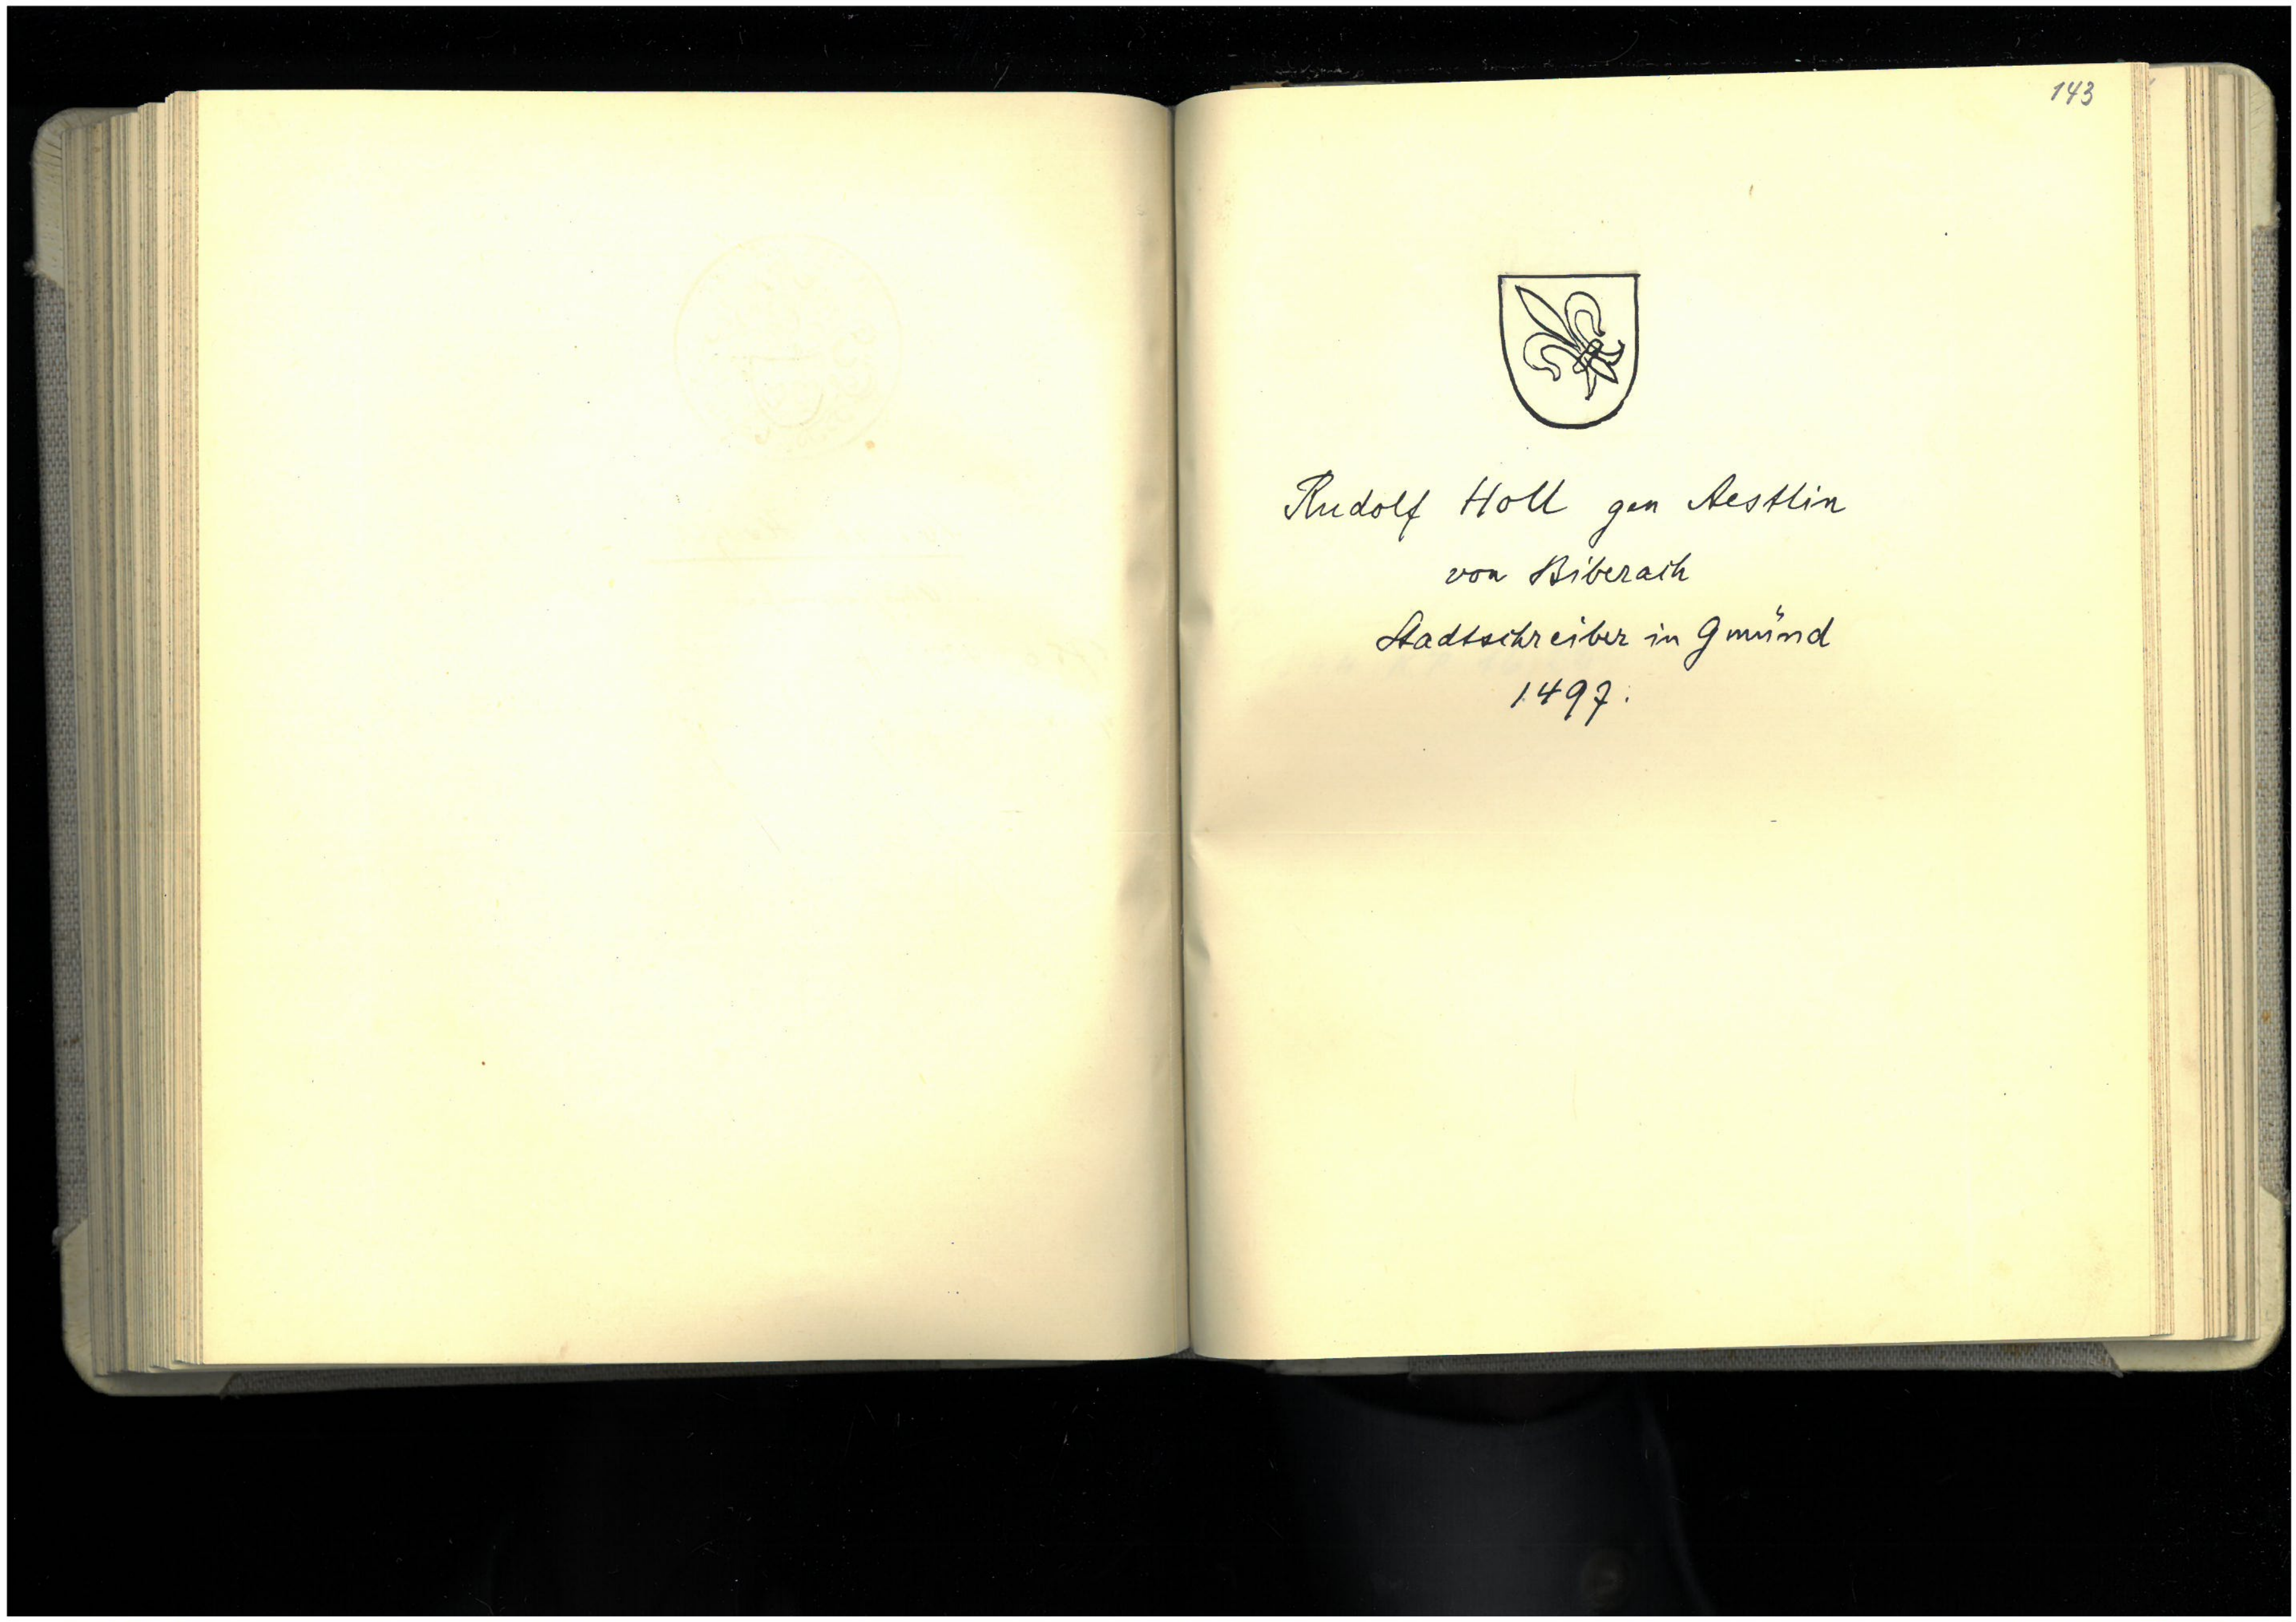 143
Rudolf Holl gen Aestlin
von Biberach
Stadtschreiber in Gmünd
1497.